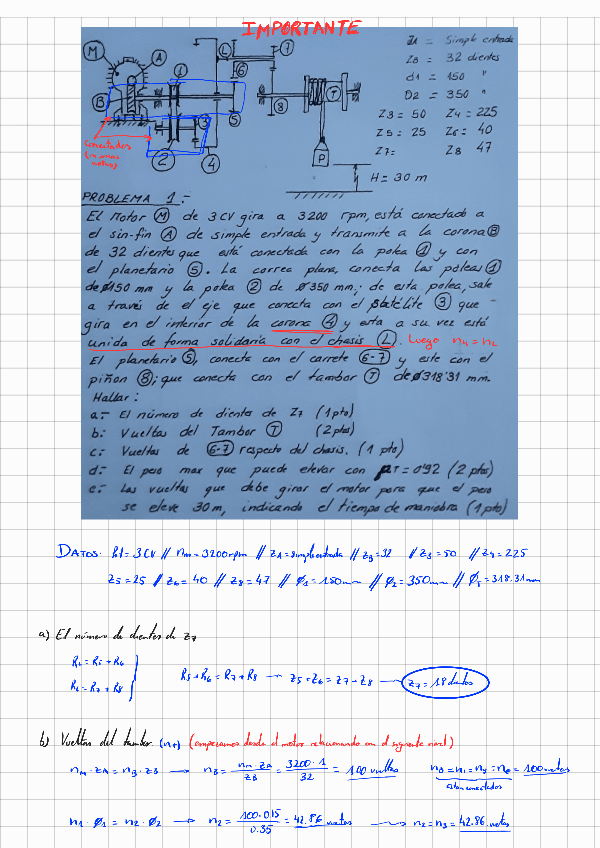 IMPORTANTE
Z1 = Simple entrada
ZB = 32 dientes
d1 = 150 "
D2 = 350 "
Z3 = 50 Z4 = 225
Z5 = 25 Z6 = 40
Z7= Z8 47
M
A
B
1
2
3
4
5
6
7
8
L
T
P
H = 30 m
Conectados
PROBLEMA 1:-
El Motor (M) de 3CV gira a 3200 rpm, está conectado a
el sin-fin (A) de simple entrada y transmite a la corona (B)
de 32 dientes que está conectada con la polea (1) y con
el planetario (5). La correa plana, conecta las poleas (1)
de ø150 mm y la polea (2) de ø350 mm; de esta polea, sale
a través de el eje que conecta con el satélite (3) que -
gira en el interior de la corona (4) y esta a su vez está
unida de forma solidaria con el chasis (L). Luego n4 = nL
El planetario (5), conecta con el carrete (6-7) y este con el
piñon (8); que conecta con el tambor (T) de ø318'31 mm.
Hallar:
a.- El número de dientes de Z7 (1 pto)
b.- Vueltas del Tambor (T) (2 ptos)
c.- Vueltas de (6-7) respecto del chasis. (1 pto)
d.- El peso max que puede elevar con μT = 0'92 (2 ptos)
e.- Las vueltas que debe girar el motor para que el peso
se eleve 30m, indicando el tiempo de maniobra (1 pto)
DATOS: = 3CV // nm = 3200rpm // ZA = simple entrada // ZB = 32 // Z3 = 50 // Z4 = 225
Z5 = 25 // Z6 = 40 // Z8 = 47 // Ø1 = 150mm // Ø2 = 350mm // ØT = 318.31mm
a) El número de dientes de Z7
RL = R5 + R6
RL = R7 + R8
R5 + R6 = R7 + R8 → Z5 + Z6 = Z7 + Z8 → Z7 = 18 dientes
b) Vueltas del tambor (nT) (empezamos desde el motor relacionando con el siguiente nivel)
nm · ZA = nB · ZB → nB = nm · ZA / ZB = 3200 · 1 / 32 = 100 vueltas nB = n1 = n5 = n6 = 100 vueltas
estan conectados
n1 · Ø1 = n2 · Ø2 → n2 = 100 · 0.15 / 0.35 = 42.86 vueltas → n2 = n3 = 42.86 vueltas